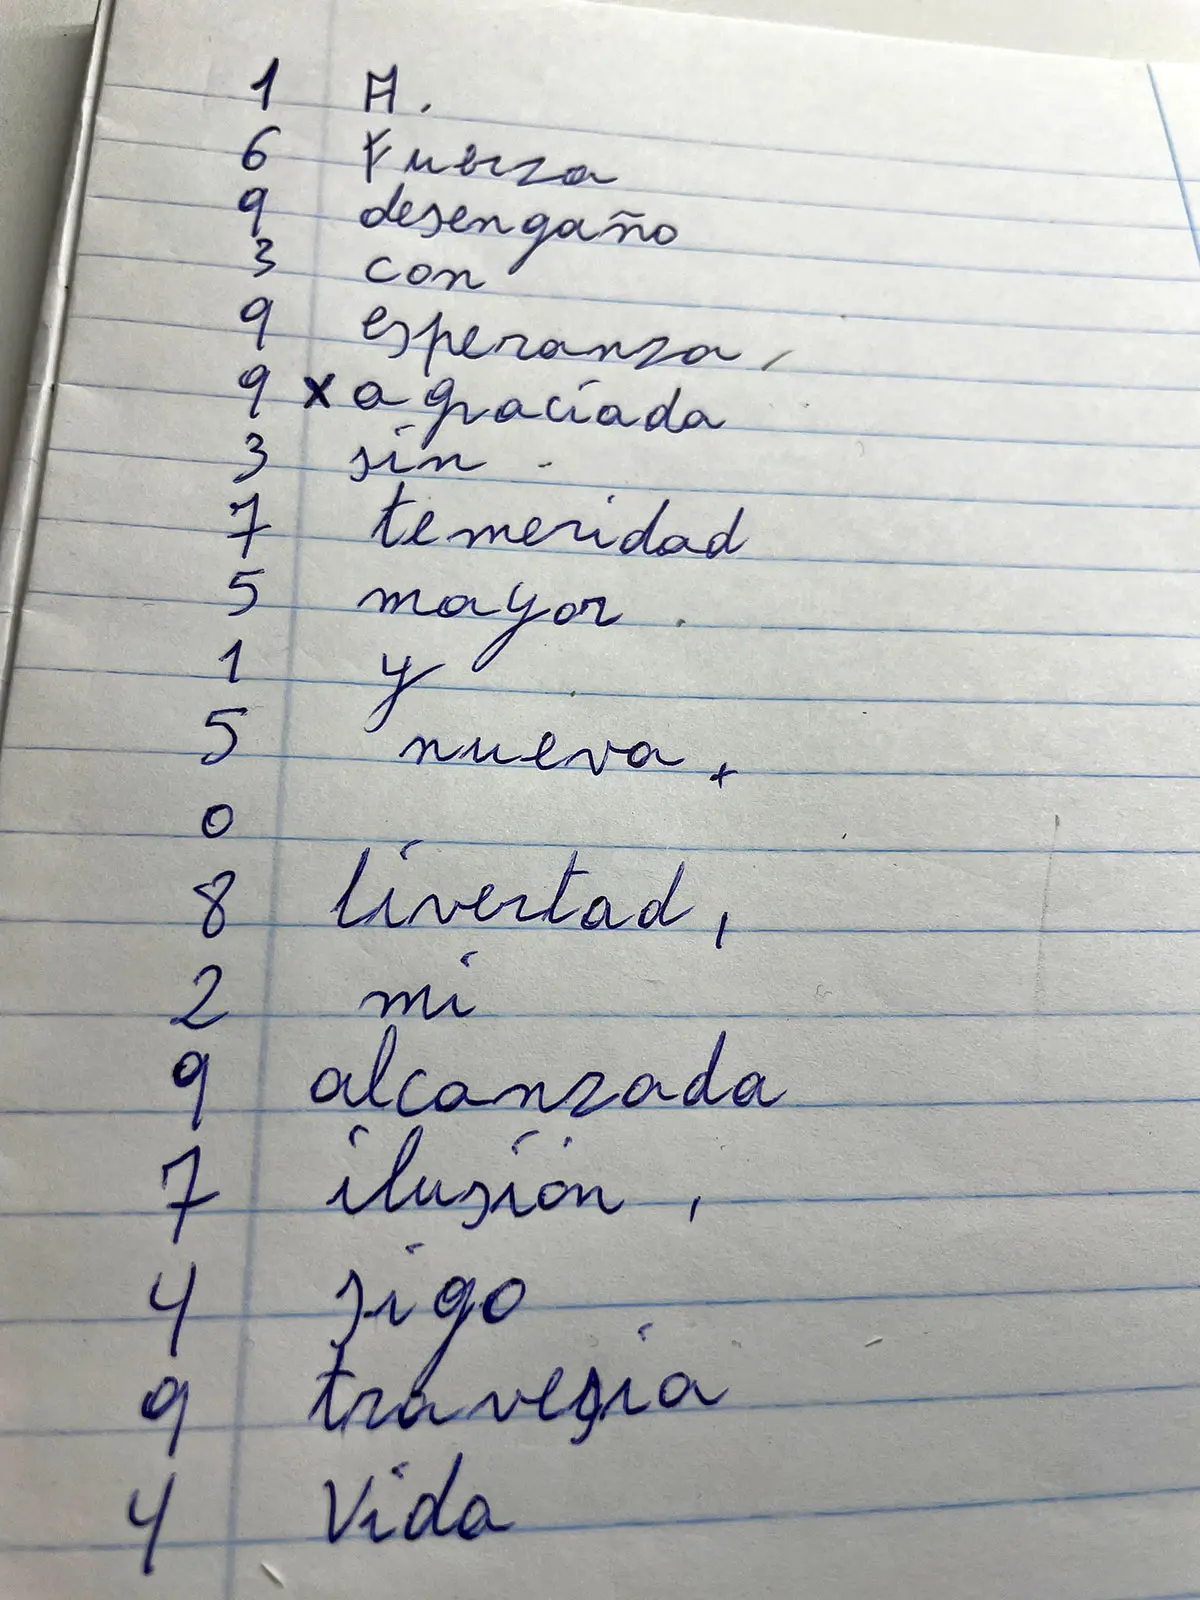 1 A.
6 Fuerza
9 desengaño
3 con
9 esperanza,
9 x agraciada
3 sin
7 temeridad
5 mayor
1 y
5 nueva.
0
8 livertad,
2 mi
9 alcanzada
7 ilusión,
4 sigo
9 travesia
4 Vida